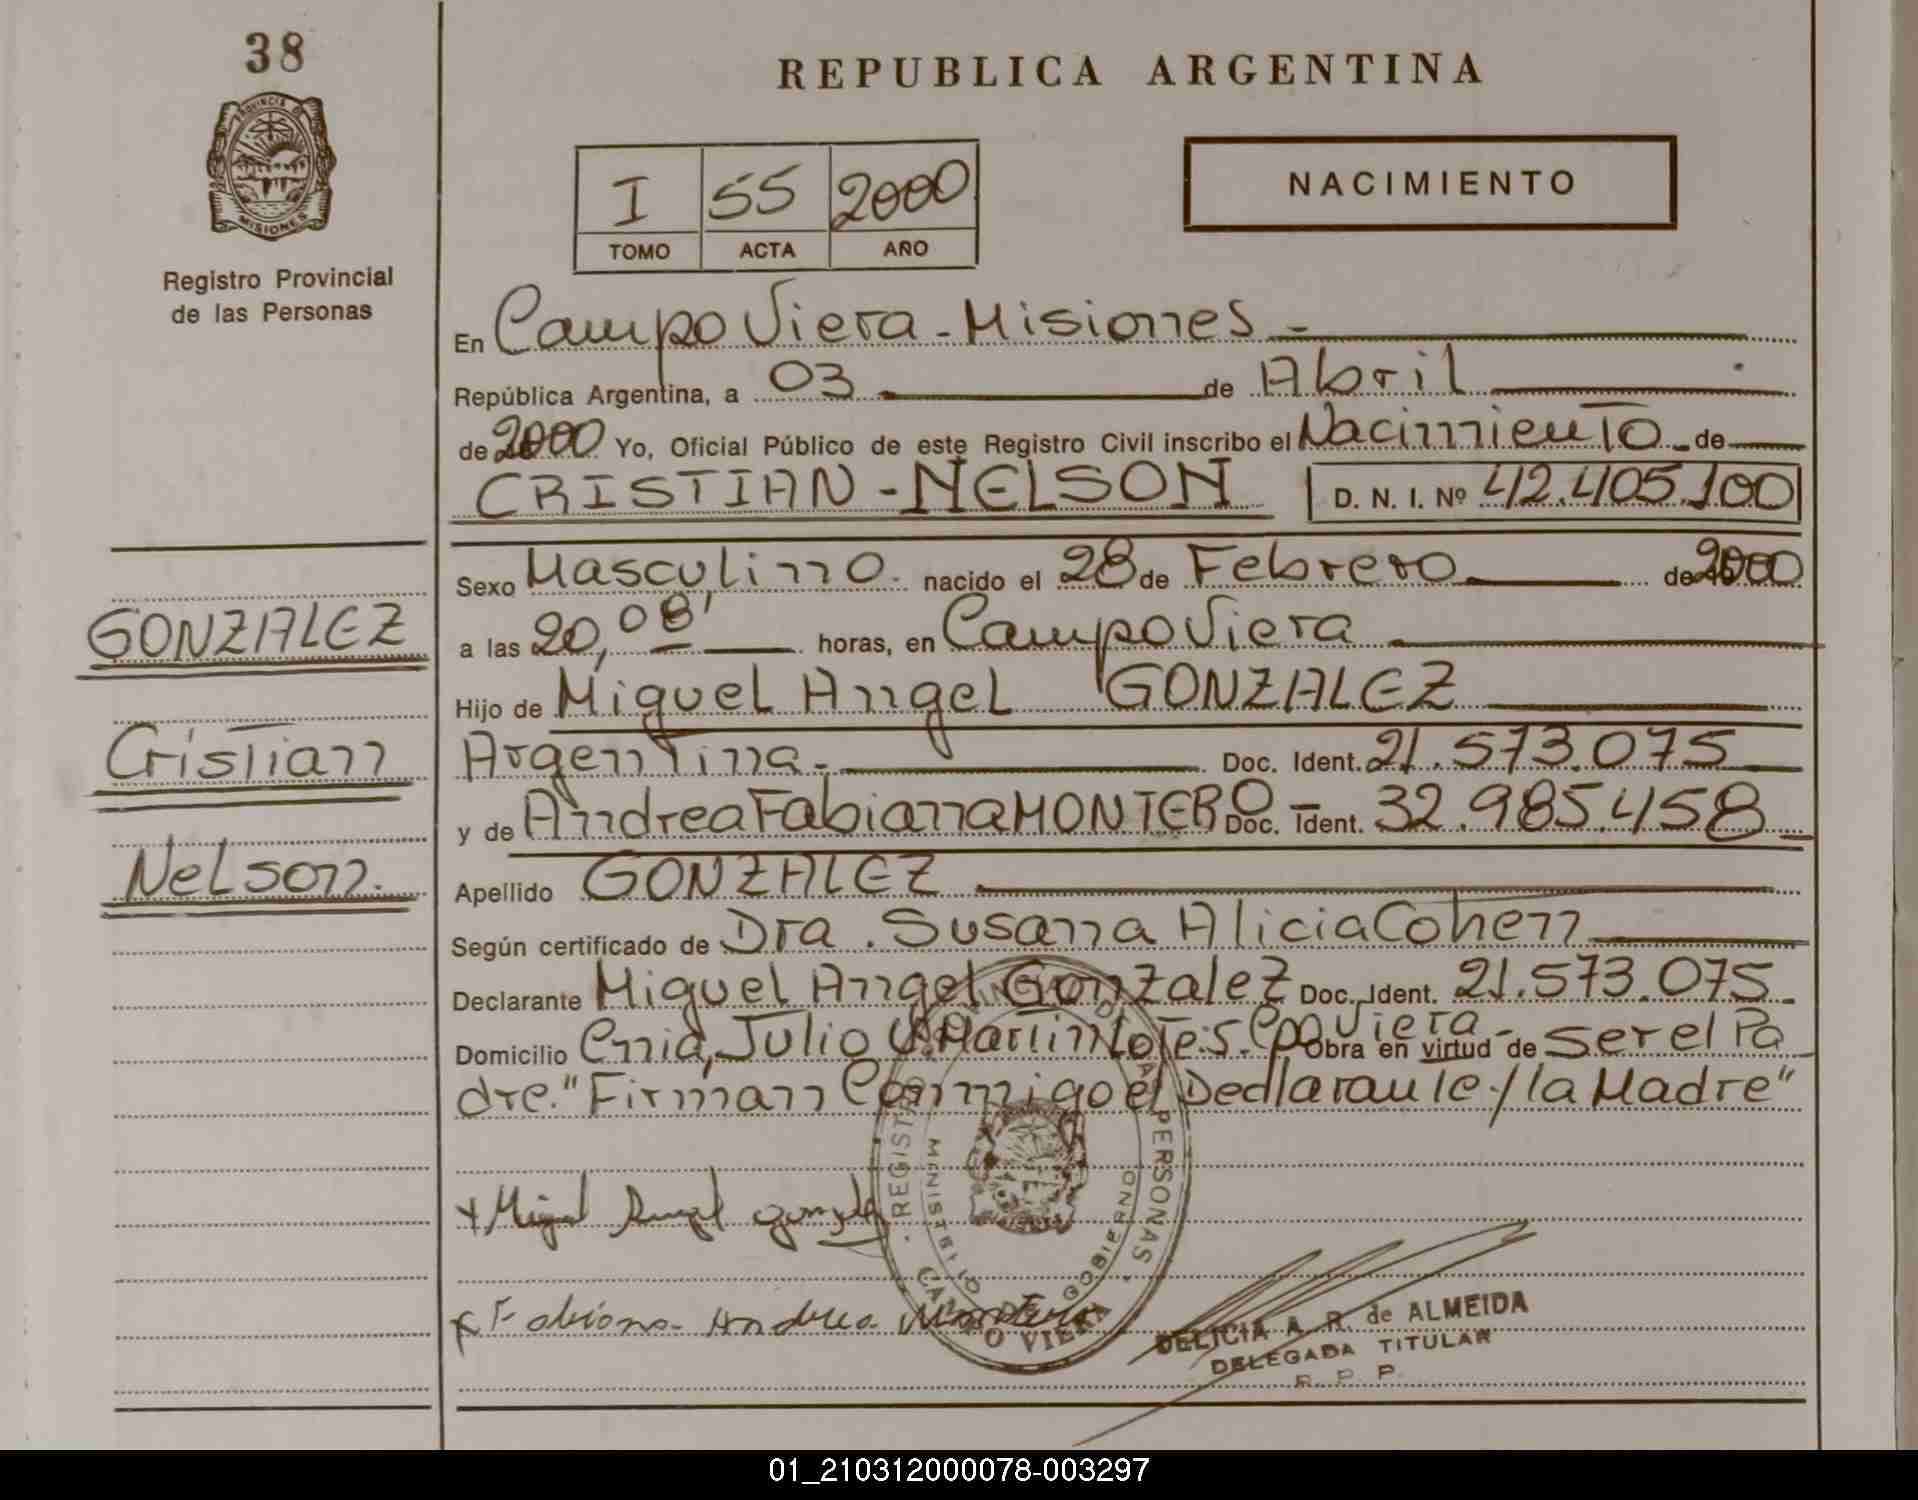 38
PROVINCIA DE
MISIONES
Registro Provincial
de las Personas
GONZALEZ
Cristian
Nelson.
REPUBLICA ARGENTINA
I 55 2000
TOMO ACTA AÑO
NACIMIENTO
En Campo Viera - Misiones -
República Argentina, a 03 de Abril
de 2000 Yo, Oficial Público de este Registro Civil inscribo el Nacimiento de
CRISTIAN - NELSON D. N. I. Nº 42.405.100
Sexo Masculino. nacido el 28 de Febrero de 2000
a las 20,08' horas, en Campo Viera
Hijo de Miguel Angel GONZALEZ
Argentina. Doc. Ident. 21.573.075
y de Andrea Fabiana MONTERO Doc. Ident. 32.985.458
Apellido GONZALEZ
Según certificado de Dra. Susana Alicia Cohen
Declarante Miguel Angel Gonzalez Doc. Ident. 21.573.075
Domicilio Julio U. Martin Viera - Obra en virtud de ser el Pa
dre. "Firman Conmigo el Declarante / la Madre"
x Miguel Angel Gonzalez
x Fabiana Andrea Montero
REGISTRO PERSONAS
MINISTERIO DE GOBIERNO
CAMPO VIERA
DELICIA A. R. de ALMEIDA
DELEGADA TITULAR
R. P. P.
01_210312000078-003297